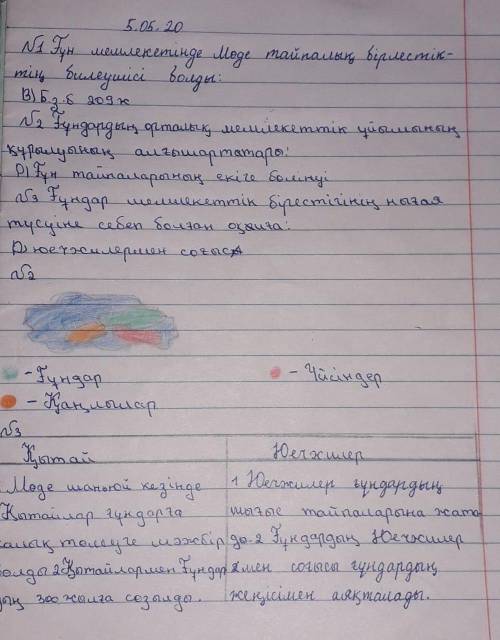 5.05.20
№1 Ғұн мемлекетінде Мөде тайпалық бірлестік-
тің билеушісі болды:
В) Б.з.б 209ж
№2 Ғұндардың орталық мемлекеттік ұйымының
құрылуының алғышарттары:
Д) Ғұн тайпаларының екіге бөлінуі
№3 Ғұндар мемлекеттік бірлестігінің нығая
түсуіне себеп болған оқиға:
Д) Юечжилермен соғыс
№2
- Ғұндар
- Үйсіндер
- Қаңлылар
№3
Қытай
Юечжилер
Мөде шанюй кезінде
Қытайлар ғұндарға
салық төлеуге мәжбір
болды 2 Қытайлармен Ғұндар
дың 300 жылға созылды.
1 Юечжилер ғұндардың
шығыс тайпаларына жата
ды. 2 Ғұндардың Юечжилер
мен соғысы ғұндардың
жеңісімен аяқталады.